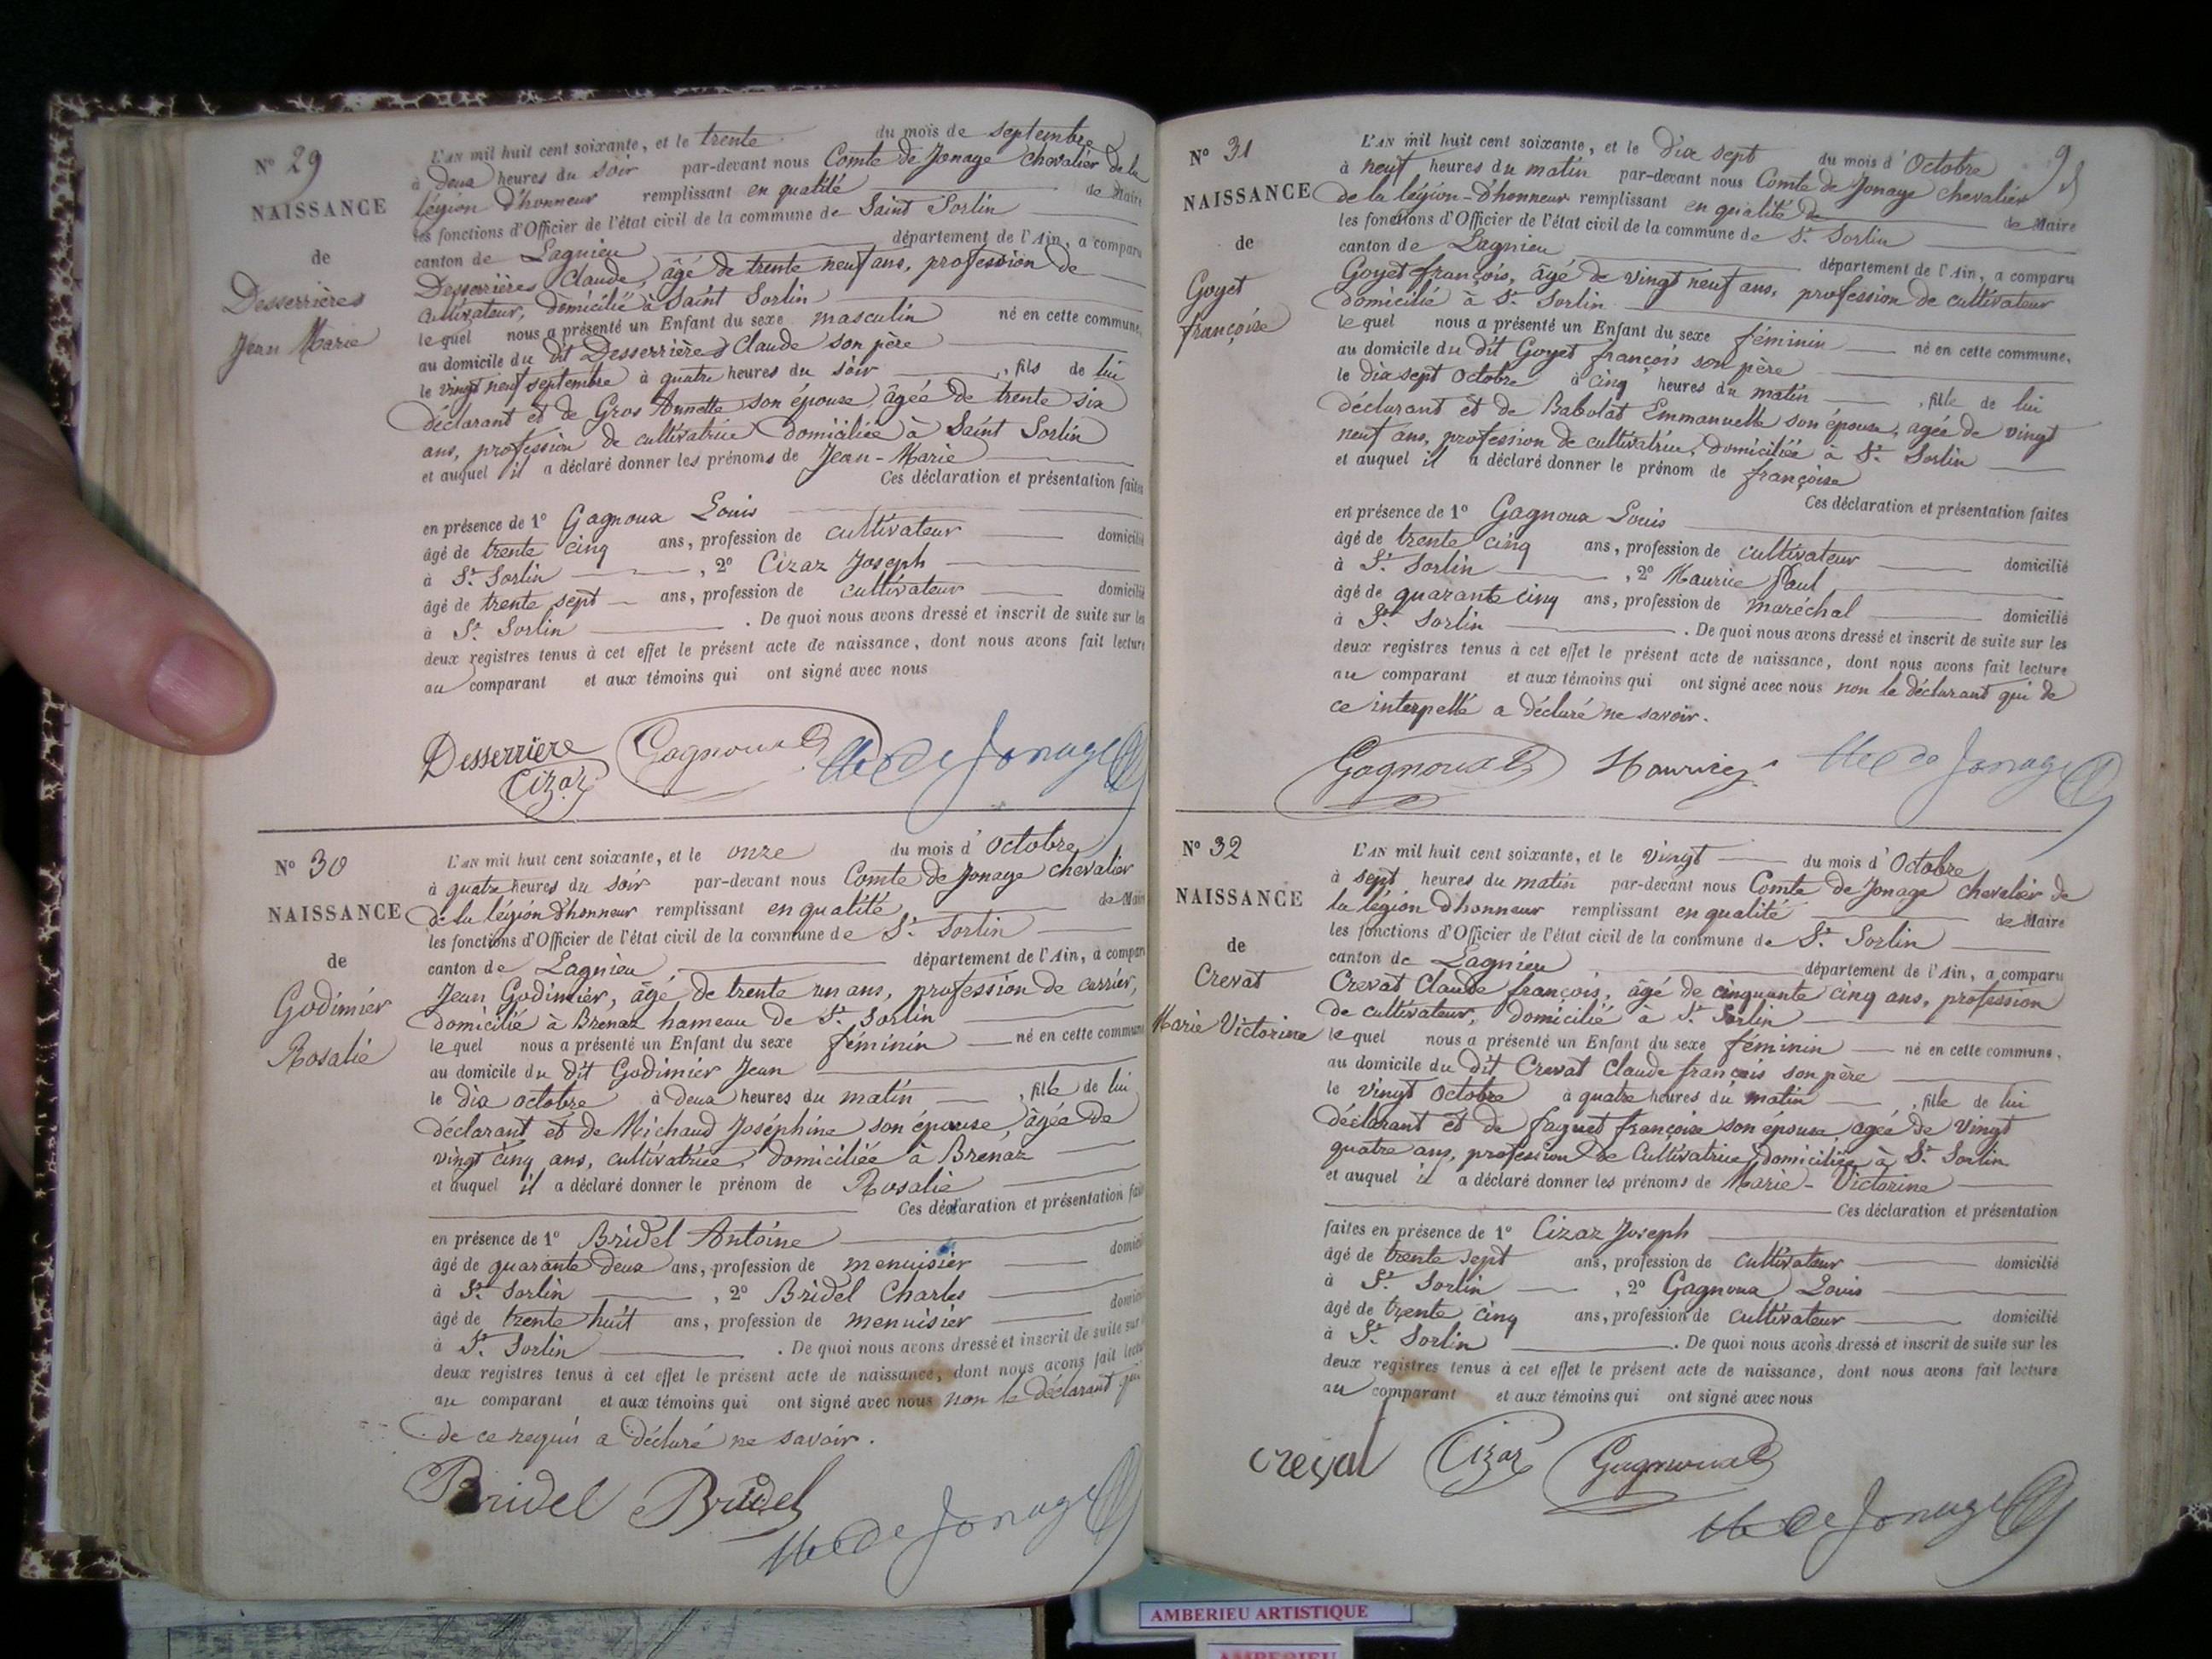 N° 29
NAISSANCE
de
Desserrières
Jean Marie
L'AN mil huit cent soixante, et le trente du mois de septembre
à deux heures du soir par-devant nous Comte de Jonage chevalier de la
légion d'honneur remplissant en qualité de Maire
les fonctions d'Officier de l'état civil de la commune de Saint Sorlin
canton de Lagnieu département de l'Ain, a comparu
Desserrières Claude, âgé de trente neuf ans, profession de
cultivateur, domicilié à Saint Sorlin
lequel nous a présenté un Enfant du sexe masculin né en cette commune,
au domicile du dit Desserrières Claude son père
le vingt neuf septembre à quatre heures du soir, fils de lui
déclarant et de Gros Annette son épouse, âgée de trente six
ans, profession de cultivatrice domiciliée à Saint Sorlin
et auquel il a déclaré donner les prénoms de Jean-Marie
Ces déclaration et présentation faites
en présence de 1° Gagnoux Louis
âgé de trente cinq ans, profession de cultivateur domicilié
à St Sorlin, 2° Cizaz Joseph
âgé de trente sept ans, profession de cultivateur domicilié
à St Sorlin. De quoi nous avons dressé et inscrit de suite sur les
deux registres tenus à cet effet le présent acte de naissance, dont nous avons fait lecture
au comparant et aux témoins qui ont signé avec nous
Desserriere Gagnoux de Jonage
Cizaz
N° 30
NAISSANCE
de
Godimier
Rosalie
L'AN mil huit cent soixante, et le onze du mois d'Octobre
à quatre heures du soir par-devant nous Comte de Jonage chevalier
de la légion d'honneur remplissant en qualité de Maire
les fonctions d'Officier de l'état civil de la commune de St Sorlin
canton de Lagnieu, département de l'Ain, a comparu
Jean Godimier, âgé de trente un ans, profession de carrier,
domicilié à Brénaz hameau de St Sorlin
lequel nous a présenté un Enfant du sexe féminin né en cette commune
au domicile du dit Godimier Jean
le dix octobre à deux heures du matin, fille de lui
déclarant et de Michaud Joséphine son épouse, âgée de
vingt cinq ans, cultivatrice, domiciliée à Brénaz
et auquel il a déclaré donner le prénom de Rosalie
Ces déclaration et présentation faites
en présence de 1° Bridel Antoine
âgé de quarante deux ans, profession de menuisier domicilié
à St Sorlin, 2° Bridel Charles
âgé de trente huit ans, profession de menuisier domicilié
à St Sorlin. De quoi nous avons dressé et inscrit de suite sur
deux registres tenus à cet effet le présent acte de naissance, dont nous avons fait lecture
au comparant et aux témoins qui ont signé avec nous non le déclarant qui
de ce requis a déclaré ne savoir.
Bridel Bridel
de Jonage
9
N° 31
NAISSANCE
de
Goyet
françoise
L'AN mil huit cent soixante, et le dix sept du mois d'Octobre
à neuf heures du matin par-devant nous Comte de Jonage chevalier
de la légion-d'honneur remplissant en qualité de de Maire
les fonctions d'Officier de l'état civil de la commune de St Sorlin
canton de Lagnieu département de l'Ain, a comparu
Goyet françois, âgé de vingt neuf ans, profession de cultivateur
domicilié à St Sorlin
lequel nous a présenté un Enfant du sexe féminin né en cette commune,
au domicile du dit Goyet françois son père
le dix sept Octobre à cinq heures du matin, fille de lui
déclarant et de Babolat Emmanuelle son épouse, agée de vingt
neuf ans, profession de cultivatrice, domiciliée à St Sorlin
et auquel il a déclaré donner le prénom de françoise
Ces déclaration et présentation faites
en présence de 1° Gagnoux Louis
âgé de trente cinq ans, profession de cultivateur domicilié
à St Sorlin, 2° Maurice Paul
âgé de quarante cinq ans, profession de maréchal domicilié
à St Sorlin. De quoi nous avons dressé et inscrit de suite sur les
deux registres tenus à cet effet le présent acte de naissance, dont nous avons fait lecture
au comparant et aux témoins qui ont signé avec nous non le déclarant qui de
ce interpellé a déclaré ne savoir.
Gagnoux Maurice de Jonage
N° 32
NAISSANCE
de
Crevat
Marie Victorine
L'AN mil huit cent soixante, et le vingt du mois d'Octobre
à sept heures du matin par-devant nous Comte de Jonage chevalier de
la légion d'honneur remplissant en qualité de Maire
les fonctions d'Officier de l'état civil de la commune de St Sorlin
canton de Lagnieu département de l'Ain, a comparu
Crevat Claude françois, âgé de cinquante cinq ans, profession
de cultivateur, domicilié à St Sorlin
lequel nous a présenté un Enfant du sexe féminin né en cette commune,
au domicile du dit Crevat Claude françois son père
le vingt Octobre à quatre heures du matin, fille de lui
déclarant et de faguet françoise son épouse, agée de vingt
quatre ans, profession de Cultivatrice, domiciliée à St Sorlin
et auquel il a déclaré donner les prénoms de Marie-Victorine
Ces déclaration et présentation
faites en présence de 1° Cizaz Joseph
âgé de trente sept ans, profession de cultivateur domicilié
à St Sorlin, 2° Gagnoux Louis
âgé de trente cinq ans, profession de cultivateur domicilié
à St Sorlin. De quoi nous avons dressé et inscrit de suite sur les
deux registres tenus à cet effet le présent acte de naissance, dont nous avons fait lecture
au comparant et aux témoins qui ont signé avec nous
creval Cizaz Gagnoux
de Jonage
AMBERIEU ARTISTIQUE
AMBERIEU